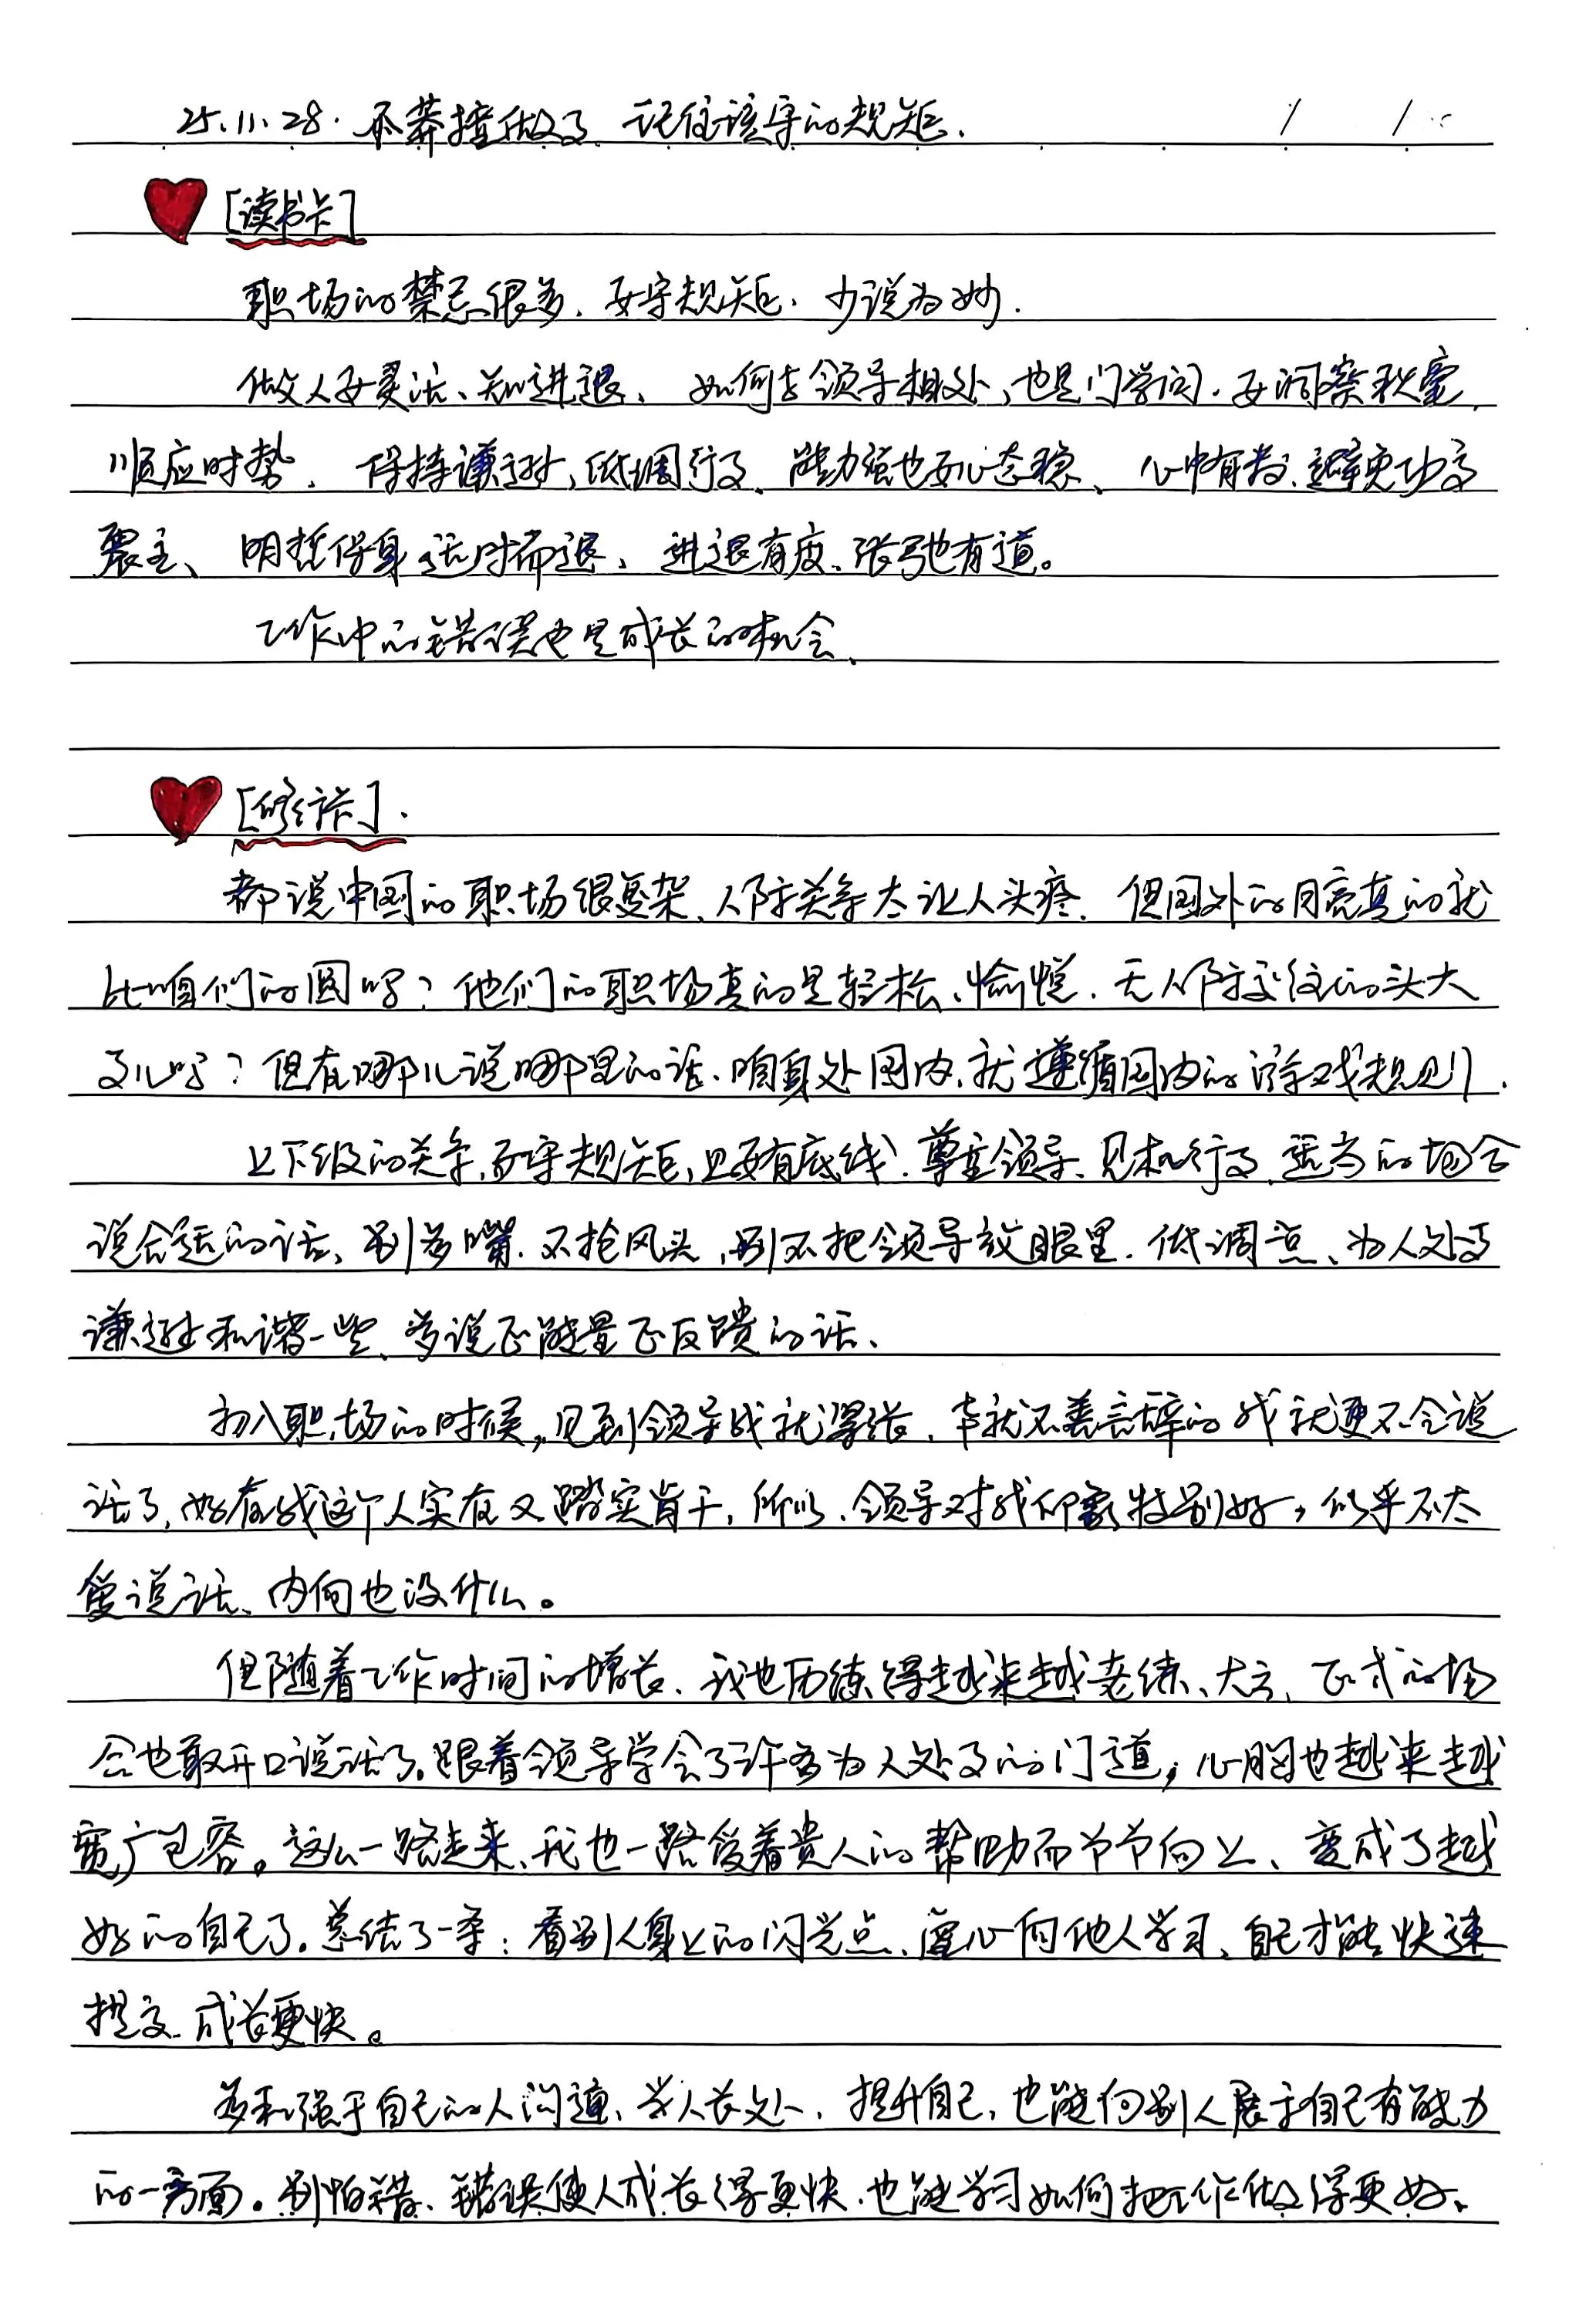 25.11.28. 不莽撞做事、记住该守的规矩.
[读书卡]
职场的禁忌很多、要守规矩、少说为妙.
做人要灵活、知进退、如何与领导相处、也是门学问. 要洞察秋毫、
顺应时势、保持谦逊、低调行事、能力强也要心态稳、心中有数、避免功高
震主、明哲保身适时而退、进退有度、张弛有道。
工作中的错误也是成长的机会、
[修行卡].
都说中国的职场很复杂、人际关系太让人头疼、但国外的月亮真的就
比咱们的圆吗? 他们的职场真的是轻松、愉悦、无人际交往的头大
事儿吗? 但有哪儿说哪里的话、咱身处国内、就遵循国内的游戏规则.
上下级的关系、要守规矩、且要有底线. 尊重领导、见机行事、适当的场合
说合适的话、别多嘴、不抢风头、别不把领导放眼里. 低调点、为人处事
谦逊和谐一些、多说正能量正反馈的话、
初入职场的时候, 见到领导我就紧张、本就不善言辞的我就更不会说
话了, 好在我这个人实在又踏实肯干, 所以、领导对我印象特别好, 似乎不太
爱说话、内向也没什么。
但随着工作时间的增长、我也历练得越来越老练、大方、正式的场
合也敢开口说话了。跟着领导学会了许多为人处事的门道, 心胸也越来越
宽广包容。这么一路走来、我也一路受着贵人的帮助而节节向上、变成了越
好的自己了。总结了一条: 看别人身上的闪光点、虚心向他人学习、自己才能快速
提高、成长更快。
多和强于自己的人沟通、学人长处、提升自己、也能向别人展于自己有能力
的一方面。别怕错、错误使人成长得更快、也能学习如何把工作做得更好、